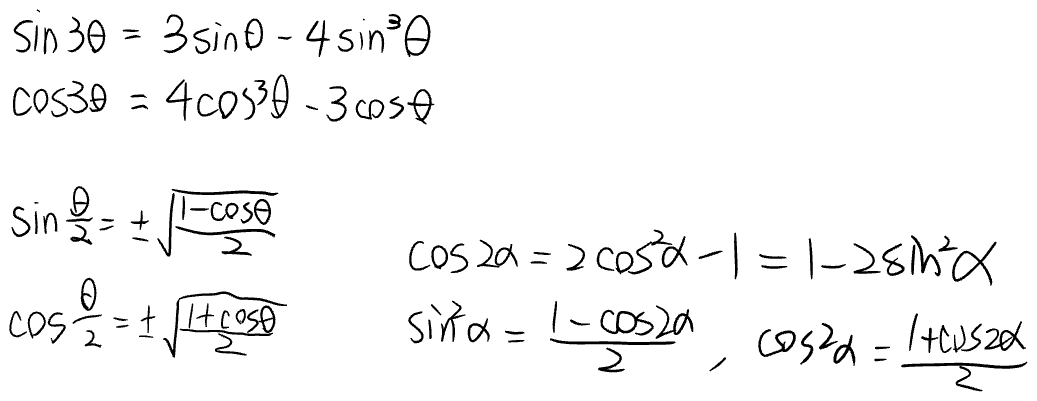 sin 3θ = 3 sinθ - 4 sin³θ
cos3θ = 4cos³θ - 3 cosθ
sin θ/2 = ± √((1-cosθ)/2)
cos θ/2 = ± √((1+cosθ)/2)
cos 2α = 2 cos²α - 1 = 1 - 2 sin²α
sin²α = (1 - cos2α)/2 , cos²α = (1+cos2α)/2